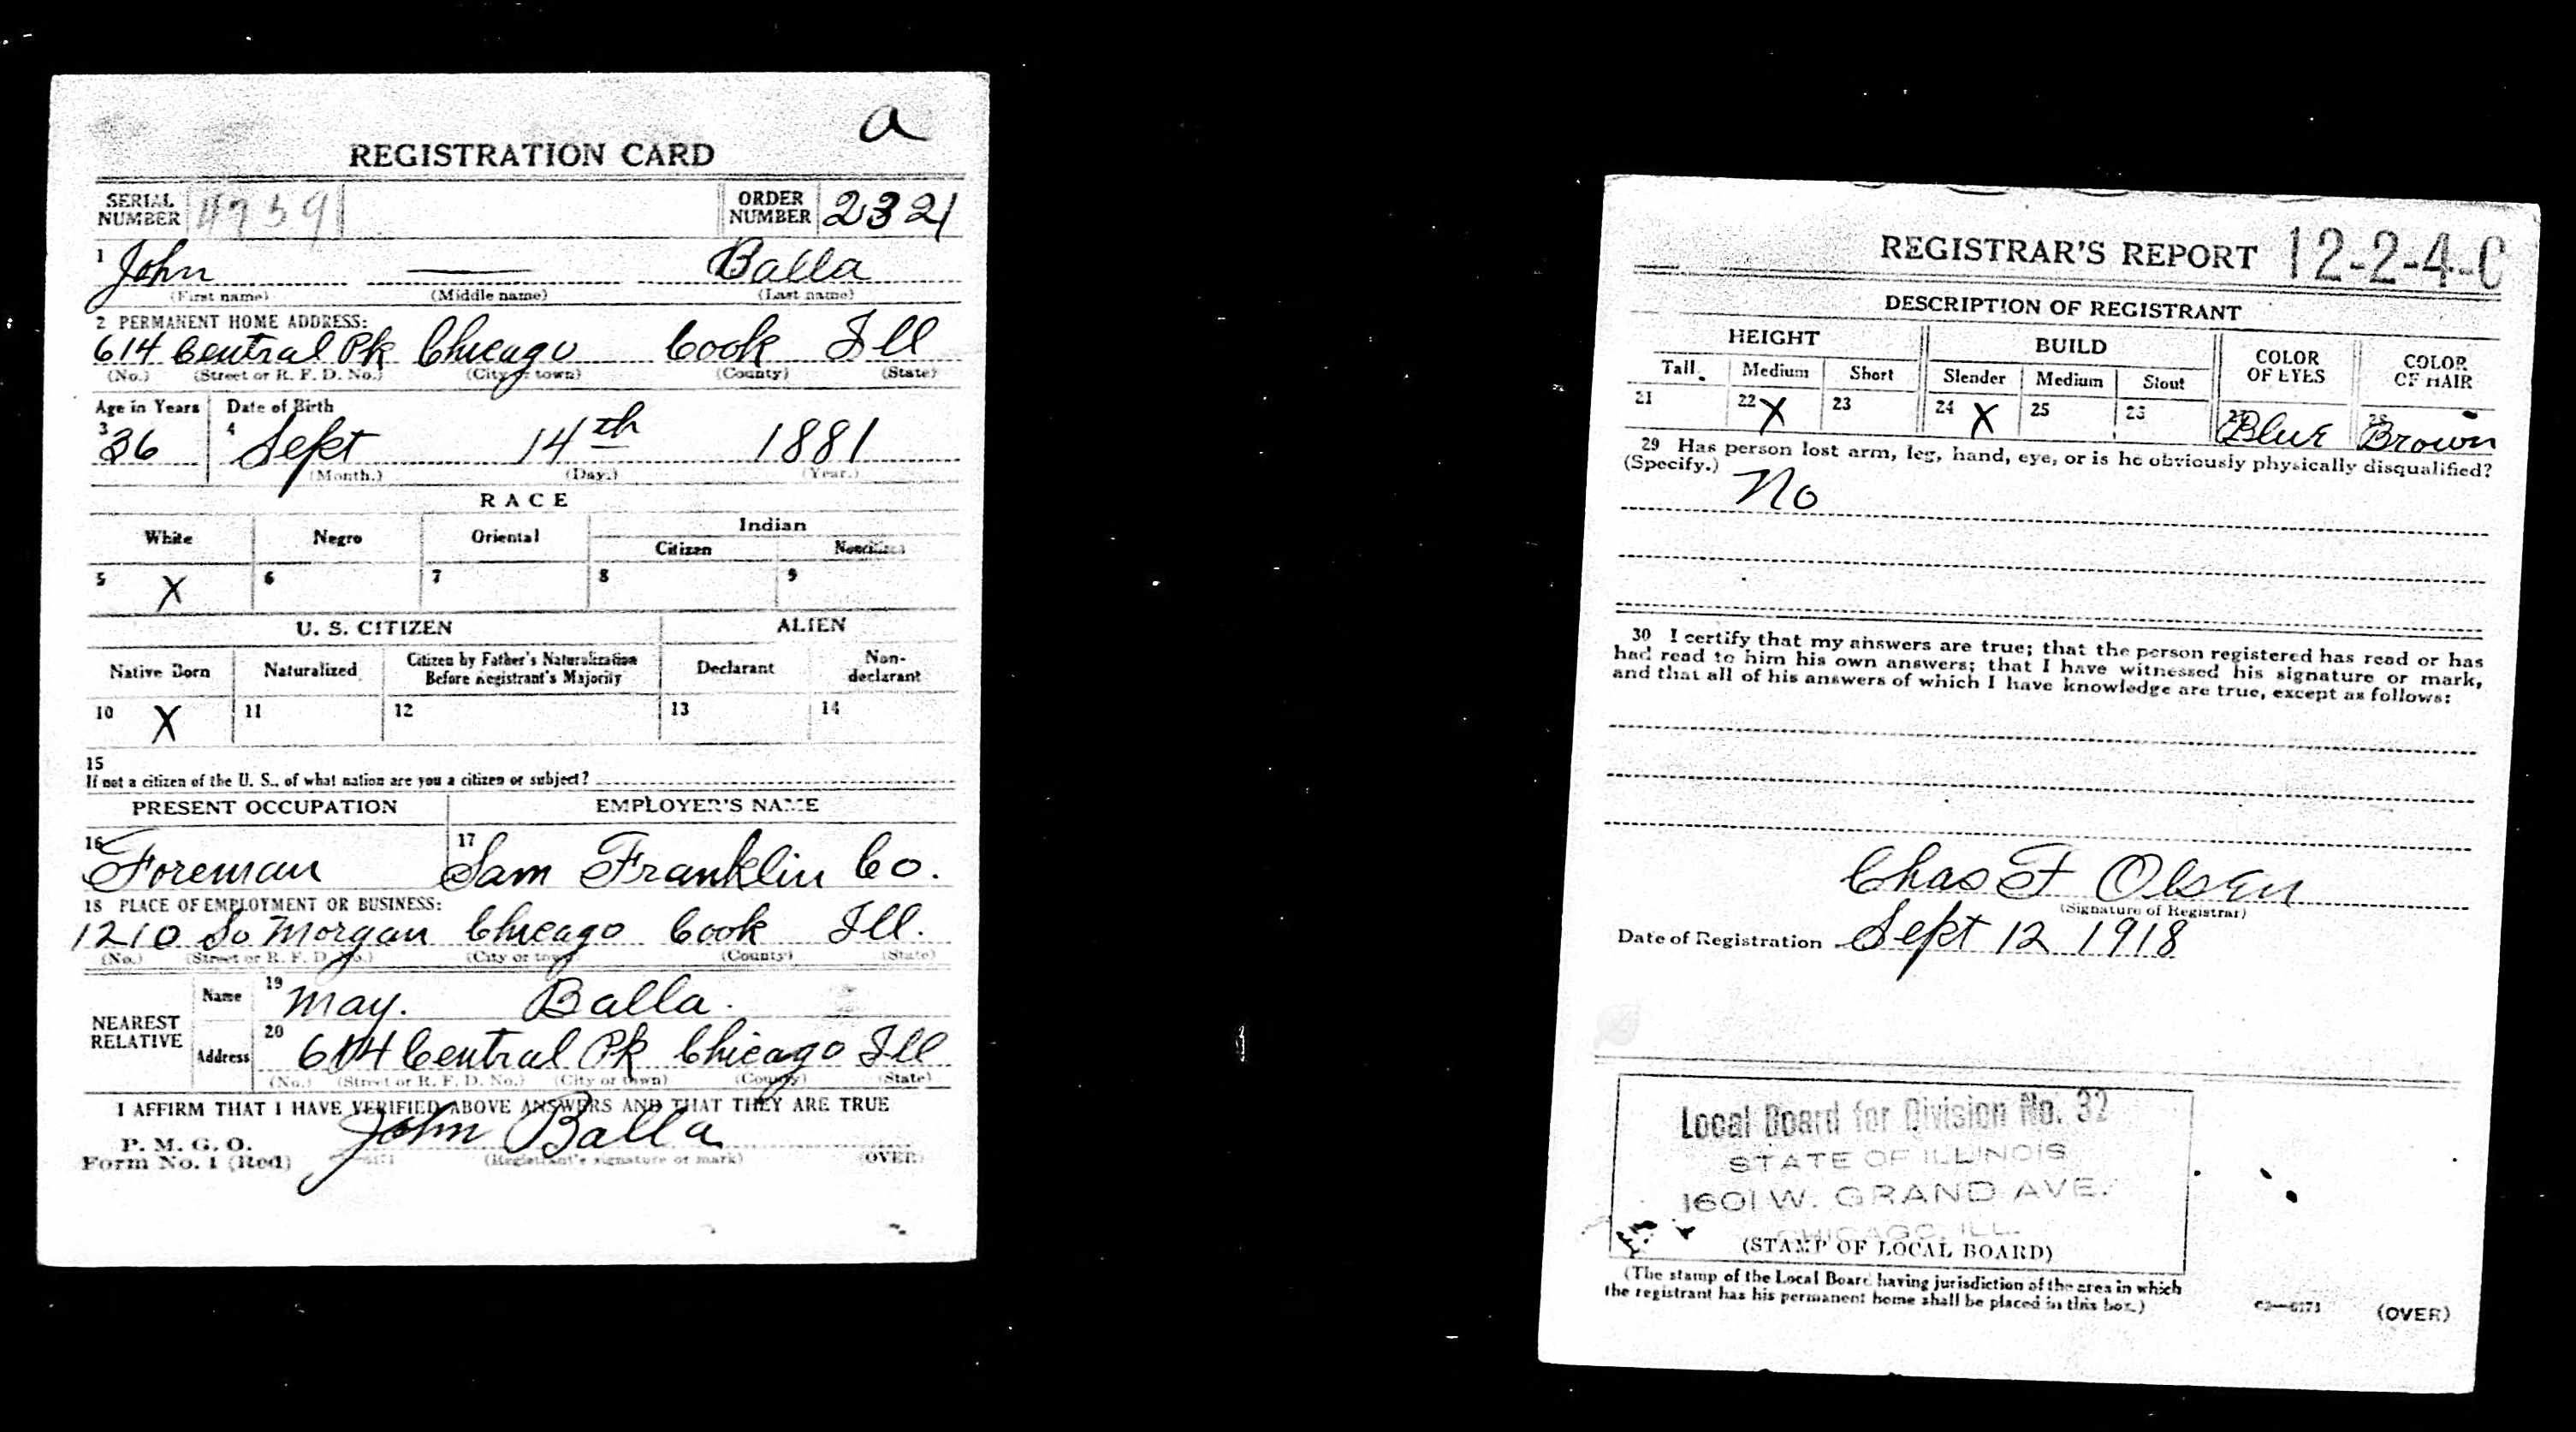 a
REGISTRATION CARD
SERIAL NUMBER 4939 ORDER NUMBER 2321
1 John —— Balla
(First name) (Middle name) (Last name)
2 PERMANENT HOME ADDRESS:
614 Central Pk Chicago Cook Ill
(No.) (Street or R. F. D. No.) (City or town) (County) (State)
Age in Years Date of Birth
3 36 4 Sept 14th 1881
(Month.) (Day.) (Year.)
RACE
White Negro Oriental Indian
Citizen Noncitizen
5 X 6 7 8 9
U. S. CITIZEN ALIEN
Native Born Naturalized Citizen by Father's Naturalization Before Registrant's Majority Declarant Non-declarant
10 X 11 12 13 14
15
If not a citizen of the U. S., of what nation are you a citizen or subject?
PRESENT OCCUPATION EMPLOYER'S NAME
16 Foreman 17 Sam Franklin Co.
18 PLACE OF EMPLOYMENT OR BUSINESS:
1210 So Morgan Chicago Cook Ill.
(No.) (Street or R. F. D. No.) (City or town) (County) (State)
NEAREST RELATIVE
Name 19 May. Balla.
Address 20 614 Central Pk Chicago Ill
(No.) (Street or R. F. D. No.) (City or town) (County) (State)
I AFFIRM THAT I HAVE VERIFIED ABOVE ANSWERS AND THAT THEY ARE TRUE
P. M. G. O.
Form No. 1 (Red) John Balla
(Registrant's signature or mark) (OVER)
REGISTRAR'S REPORT 12-2-4-C
DESCRIPTION OF REGISTRANT
HEIGHT BUILD COLOR OF EYES COLOR OF HAIR
Tall Medium Short Slender Medium Stout
21 22 X 23 24 X 25 26 27 Blue 28 Brown
29 Has person lost arm, leg, hand, eye, or is he obviously physically disqualified?
(Specify.) No
30 I certify that my answers are true; that the person registered has read or has
had read to him his own answers; that I have witnessed his signature or mark,
and that all of his answers of which I have knowledge are true, except as follows:
Chas F Olsen
(Signature of Registrar)
Date of Registration Sept 12 1918
Local Board for Division No. 32
STATE OF ILLINOIS
1601 W. GRAND AVE.
CHICAGO, ILL.
(STAMP OF LOCAL BOARD)
(The stamp of the Local Board having jurisdiction of the area in which
the registrant has his permanent home shall be placed in this box.)
03—6171 (OVER)